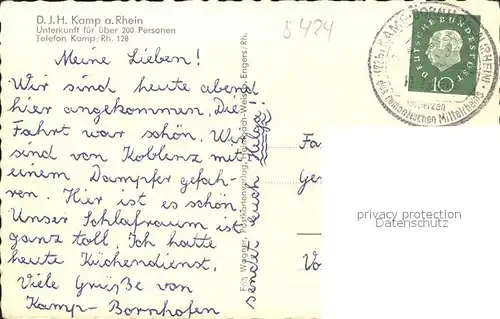 D. J. H. Kamp a. Rhein
Unterkunft für über 200 Personen
Telefon Kamp/Rh. 128
Meine Lieben!
Wir sind heute abend
hier angekommen. Die
Fahrt war schön. Wir
sind von Koblenz mit
einem Dampfer gefah-
ren. Hier ist es schön.
Unser Schlafraum ist
ganz toll. Ich hatte
heute Küchendienst.
Viele Grüße von
Kamp-Bornhofen
sendet euch Helga!
Fritz Wagner, Postkartenverlag, Engers/Rh.
5424
DEUTSCHE BUNDESPOST
10
im Herzen
des romantischen Mittelrheins
Fa
Ge
Vo
privacy protection
Datenschutz